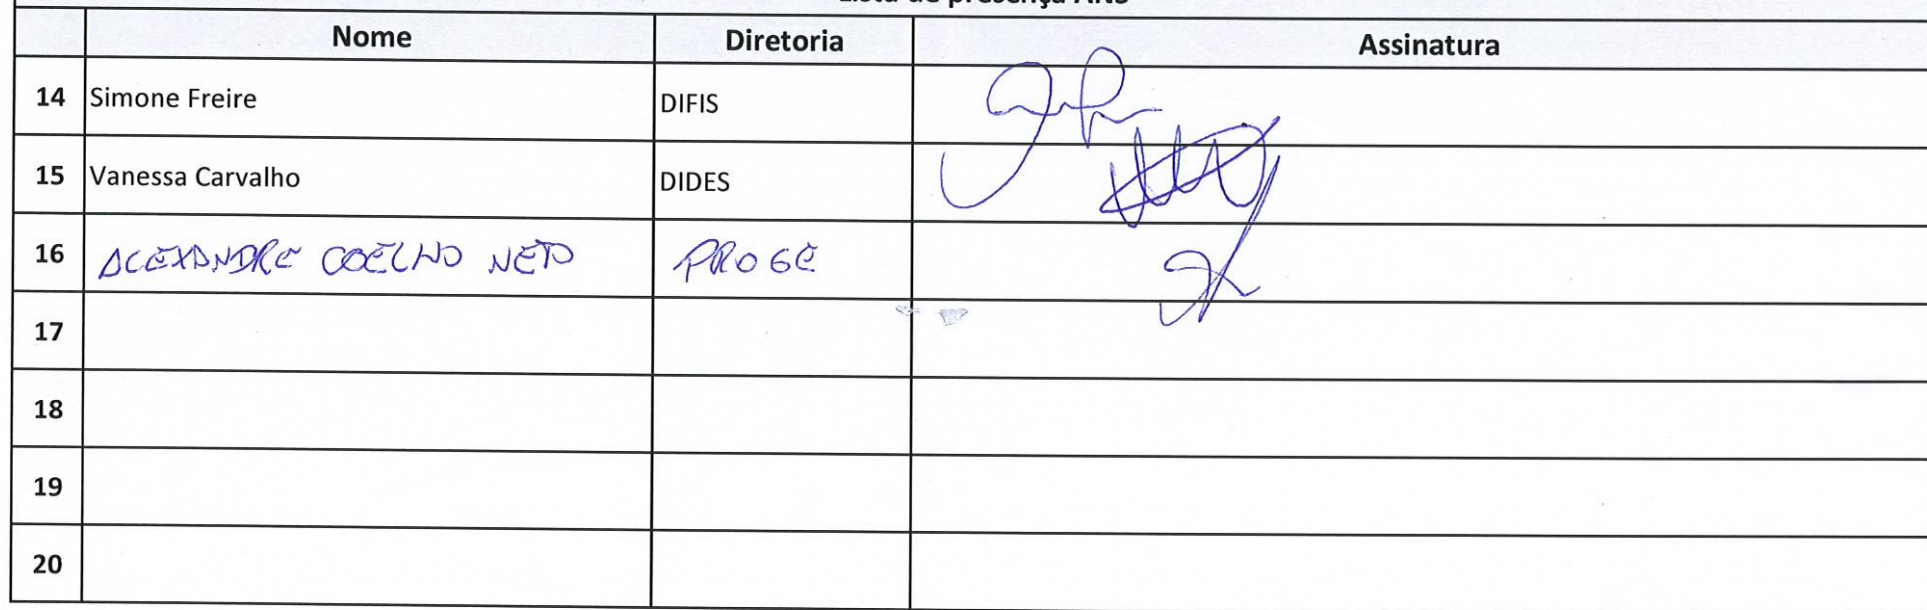 Lista de presença ANS
Nome Diretoria Assinatura
14 Simone Freire DIFIS
15 Vanessa Carvalho DIDES
16 ALEXANDRE COELHO NETO PROGE
17
18
19
20